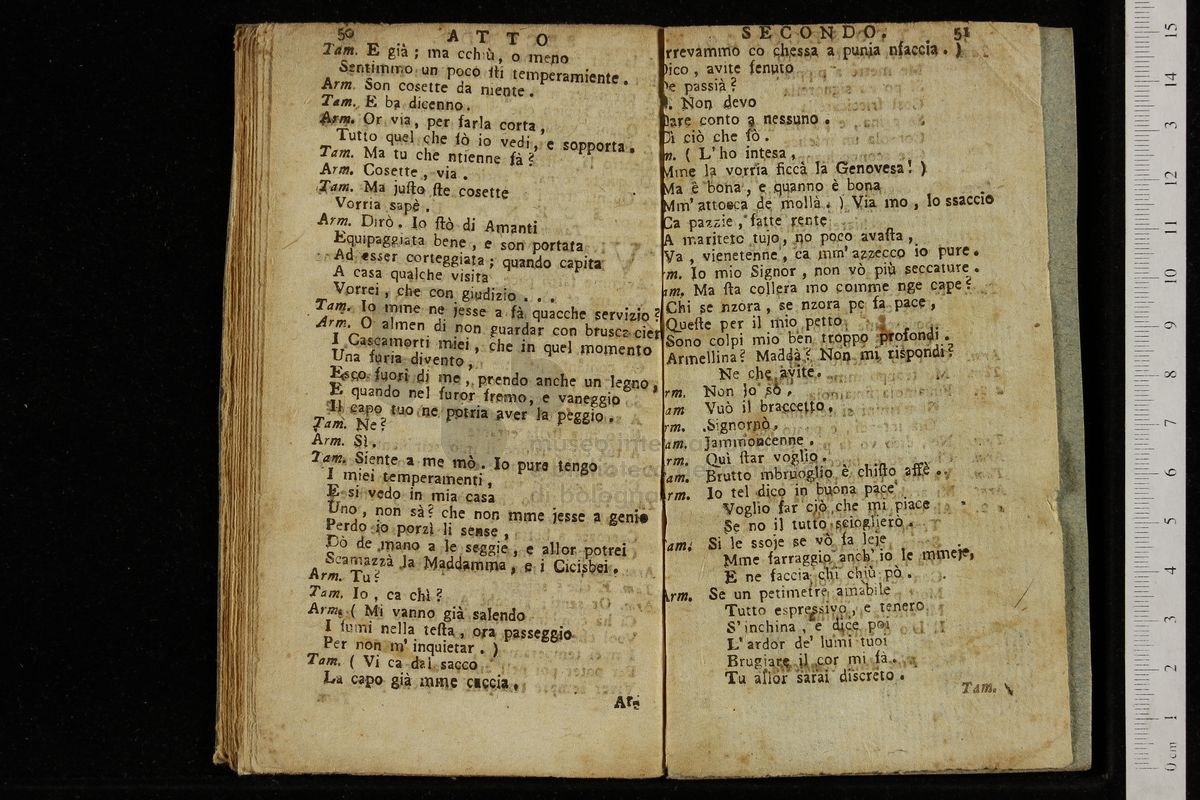 50 ATTO
Tam. E già; ma cchiù, o meno
Sentimmo un poco sti temperamiente.
Arm. Son cosette da niente.
Tam. E ba dicenno.
Arm. Or via, per farla corta,
Tutto quel che fò io vedi, e sopporta.
Tam. Ma tu che ntienne fà?
Arm. Cosette, via.
Tam. Ma justo ste cosette
Vorria sapè.
Arm. Dirò. Io stò di Amanti
Equipaggiata bene, e son portata
Ad esser corteggiata; quando capita
A casa qualche visita
Vorrei, che con giudizio...
Tam. Io mme ne jesse a fà quacche servizio?
Arm. O almen di non guardar con brusca cier
I Cascamorti miei, che in quel momento
Una furia divento,
Esco fuori di me, prendo anche un legno,
E quando nel furor fremo, e vaneggio
Il capo tuo ne potria aver la peggio.
Tam. Ne?
Arm. Sì.
Tam. Siente a me mò. Io pure tengo
I miei temperamenti,
E si vedo in mia casa
Uno, non sà? che non mme jesse a genio
Perdo io porzì li sense,
Dò de mano a le seggie, e allor potrei
Scamazzà la Maddamma, e i Cicisbei.
Arm. Tu?
Tam. Io, ca chì?
Arm. (Mi vanno già salendo
I fumi nella testa, ora passeggio
Per non m'inquietar.)
Tam. (Vi ca dal sacco
La capo già mme caccia.
SECONDO. 51
rrevammo co chessa a punia nfaccia.)
Dico, avite fenuto
De passià?
Non devo
Dare conto a nessuno.
Di ciò che fò.
m. (L'ho intesa,
Mme la vorria ficcà la Genovesa!)
Ma è bona, e quanno è bona
Mm'attocca de mollà.) Via mo, lo ssaccio
Ca pazzie, fatte rente
A mariteto tujo, no poco avasta,
Va, vienetenne, ca mm'azzecco io pure.
rm. Io mio Signor, non vò più seccature.
am. Ma sta collera mo comme nge cape?
Chi se nzora, se nzora pe fa pace,
Queste per il mio petto
Sono colpi mio ben troppo profondi.
Armellina? Maddà? Non mi rispondi?
Ne che avite.
rm. Non lo sò.
am Vuò il braccetto.
rm. Signornò.
am. Jammoncenne.
rm. Quì star voglio.
am. Brutto mbruoglio è chisto affè.
rm. Io tel dico in buona pace
Voglio far ciò che mi piace
Se no il tutto scioglierò.
am. Si le ssoje se vò fa leje
Mme farraggio anch'io le mmeje,
E ne faccia chi chiù pò.
Arm. Se un petimetre amabile
Tutto espressivo, e tenero
S'inchina, e dice poi
L'ardor de' lumi tuoi
Brugiare il cor mi fa.
Tu allor sarai discreto.
Tam.
museo internazionale
di bologna
0 cm 1 2 3 4 5 6 7 8 9 10 11 12 13 14 15